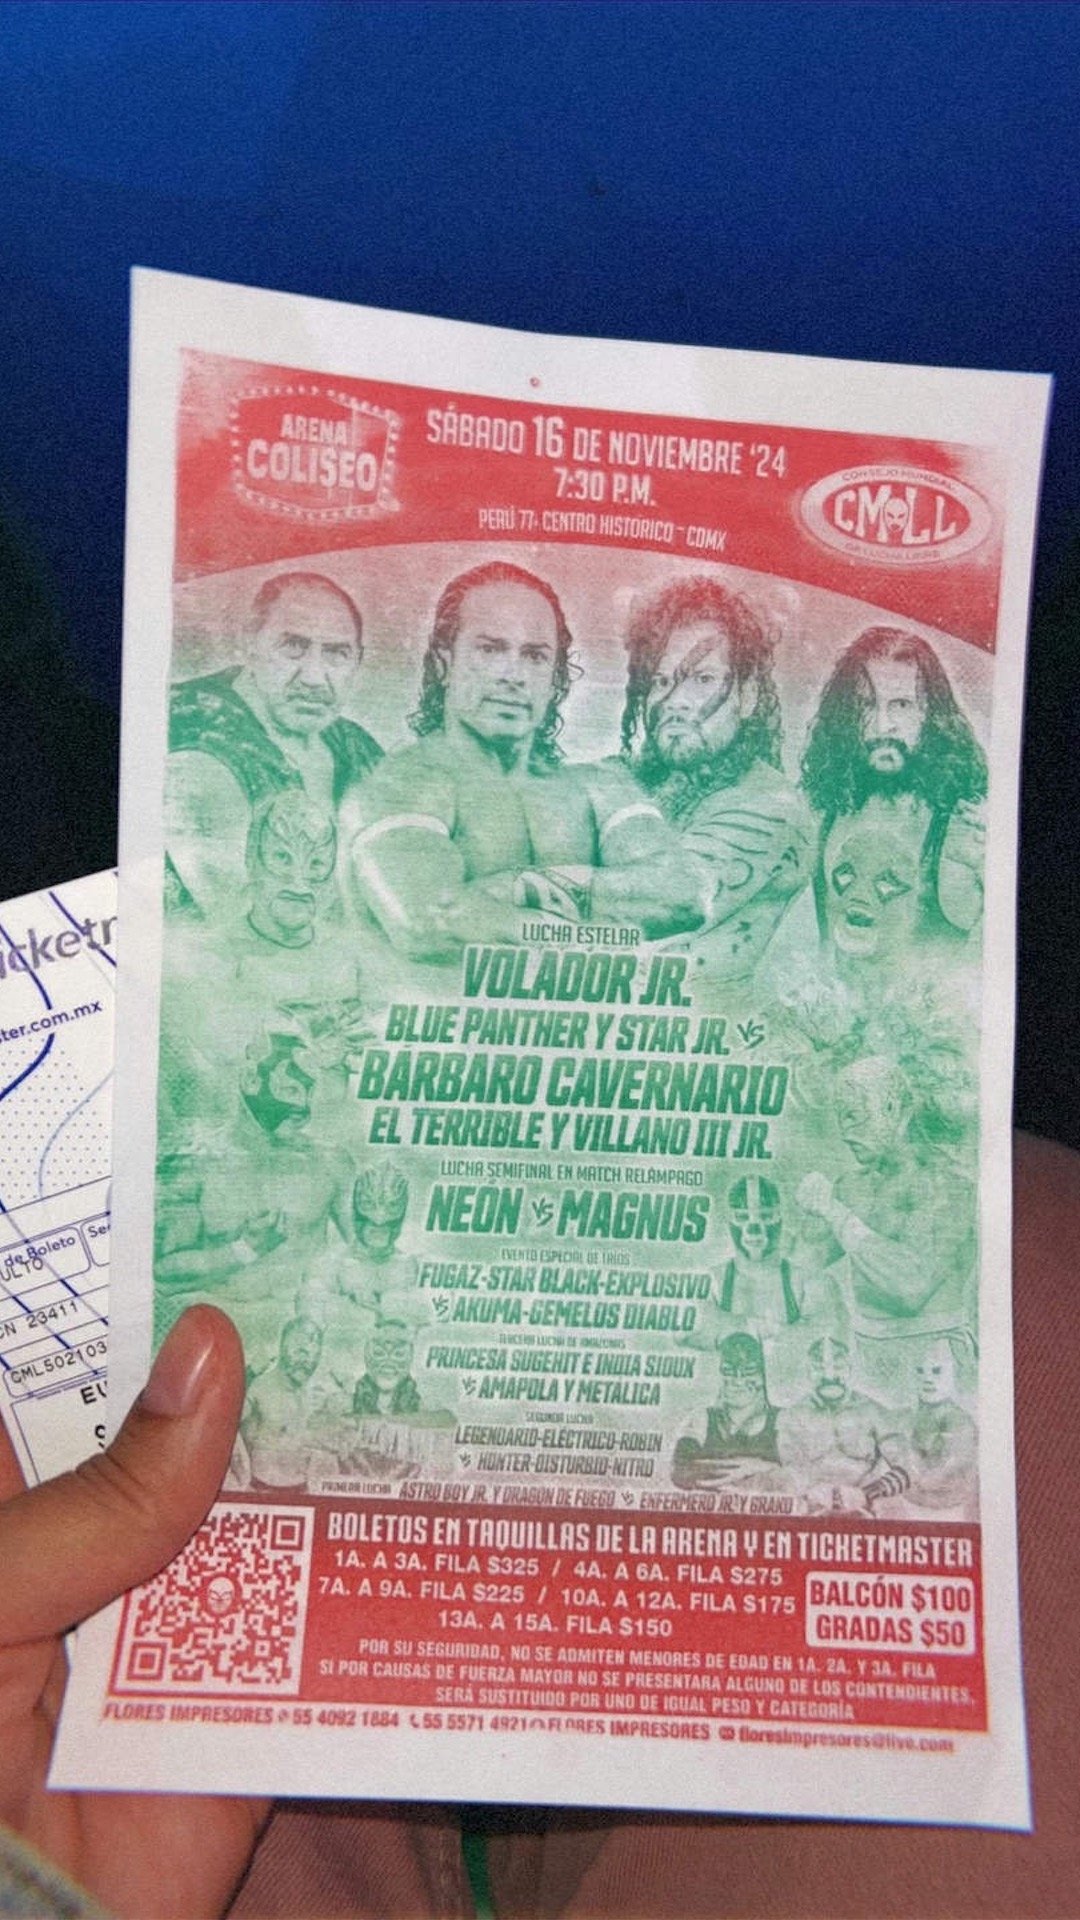 ARENA
COLISEO
SÁBADO 16 DE NOVIEMBRE '24
7:30 P.M.
PERÚ 77, CENTRO HISTORICO - CDMX
CONSEJO MUNDIAL
CMLL
DE LUCHA LIBRE
LUCHA ESTELAR
VOLADOR JR.
BLUE PANTHER Y STAR JR. VS
BÁRBARO CAVERNARIO
EL TERRIBLE Y VILLANO III JR.
LUCHA SEMIFINAL EN MATCH RELÁMPAGO
NEÓN VS MAGNUS
EVENTO ESPECIAL DE TRIOS
FUGAZ-STAR BLACK-EXPLOSIVO
VS AKUMA-GEMELOS DIABLO
TERCERA LUCHA DE AMAZONAS
PRINCESA SUGEHIT E INDIA SIOUX
VS AMAPOLA Y METÁLICA
SEGUNDA LUCHA
LEGENDARIO-ELÉCTRICO-ROBIN
VS HUNTER-DISTURBIO-NITRO
PRIMERA LUCHA ASTRO BOY JR. Y DRAGÓN DE FUEGO VS ENFERMERO JR. Y GRAKO
BOLETOS EN TAQUILLAS DE LA ARENA Y EN TICKETMASTER
1A. A 3A. FILA $325 / 4A. A 6A. FILA $275
7A. A 9A. FILA $225 / 10A. A 12A. FILA $175
13A. A 15A. FILA $150
BALCÓN $100
GRADAS $50
POR SU SEGURIDAD, NO SE ADMITEN MENORES DE EDAD EN 1A. 2A. Y 3A. FILA
SI POR CAUSAS DE FUERZA MAYOR NO SE PRESENTARA ALGUNO DE LOS CONTENDIENTES,
SERÁ SUSTITUIDO POR UNO DE IGUAL PESO Y CATEGORÍA
FLORES IMPRESORES 55 4092 1884 55 5571 4921 FLORES IMPRESORES floresimpresores@live.com
icketr
ster.com.mx
de Boleto
ULTO
Se
CN 23411
CML502103
EV